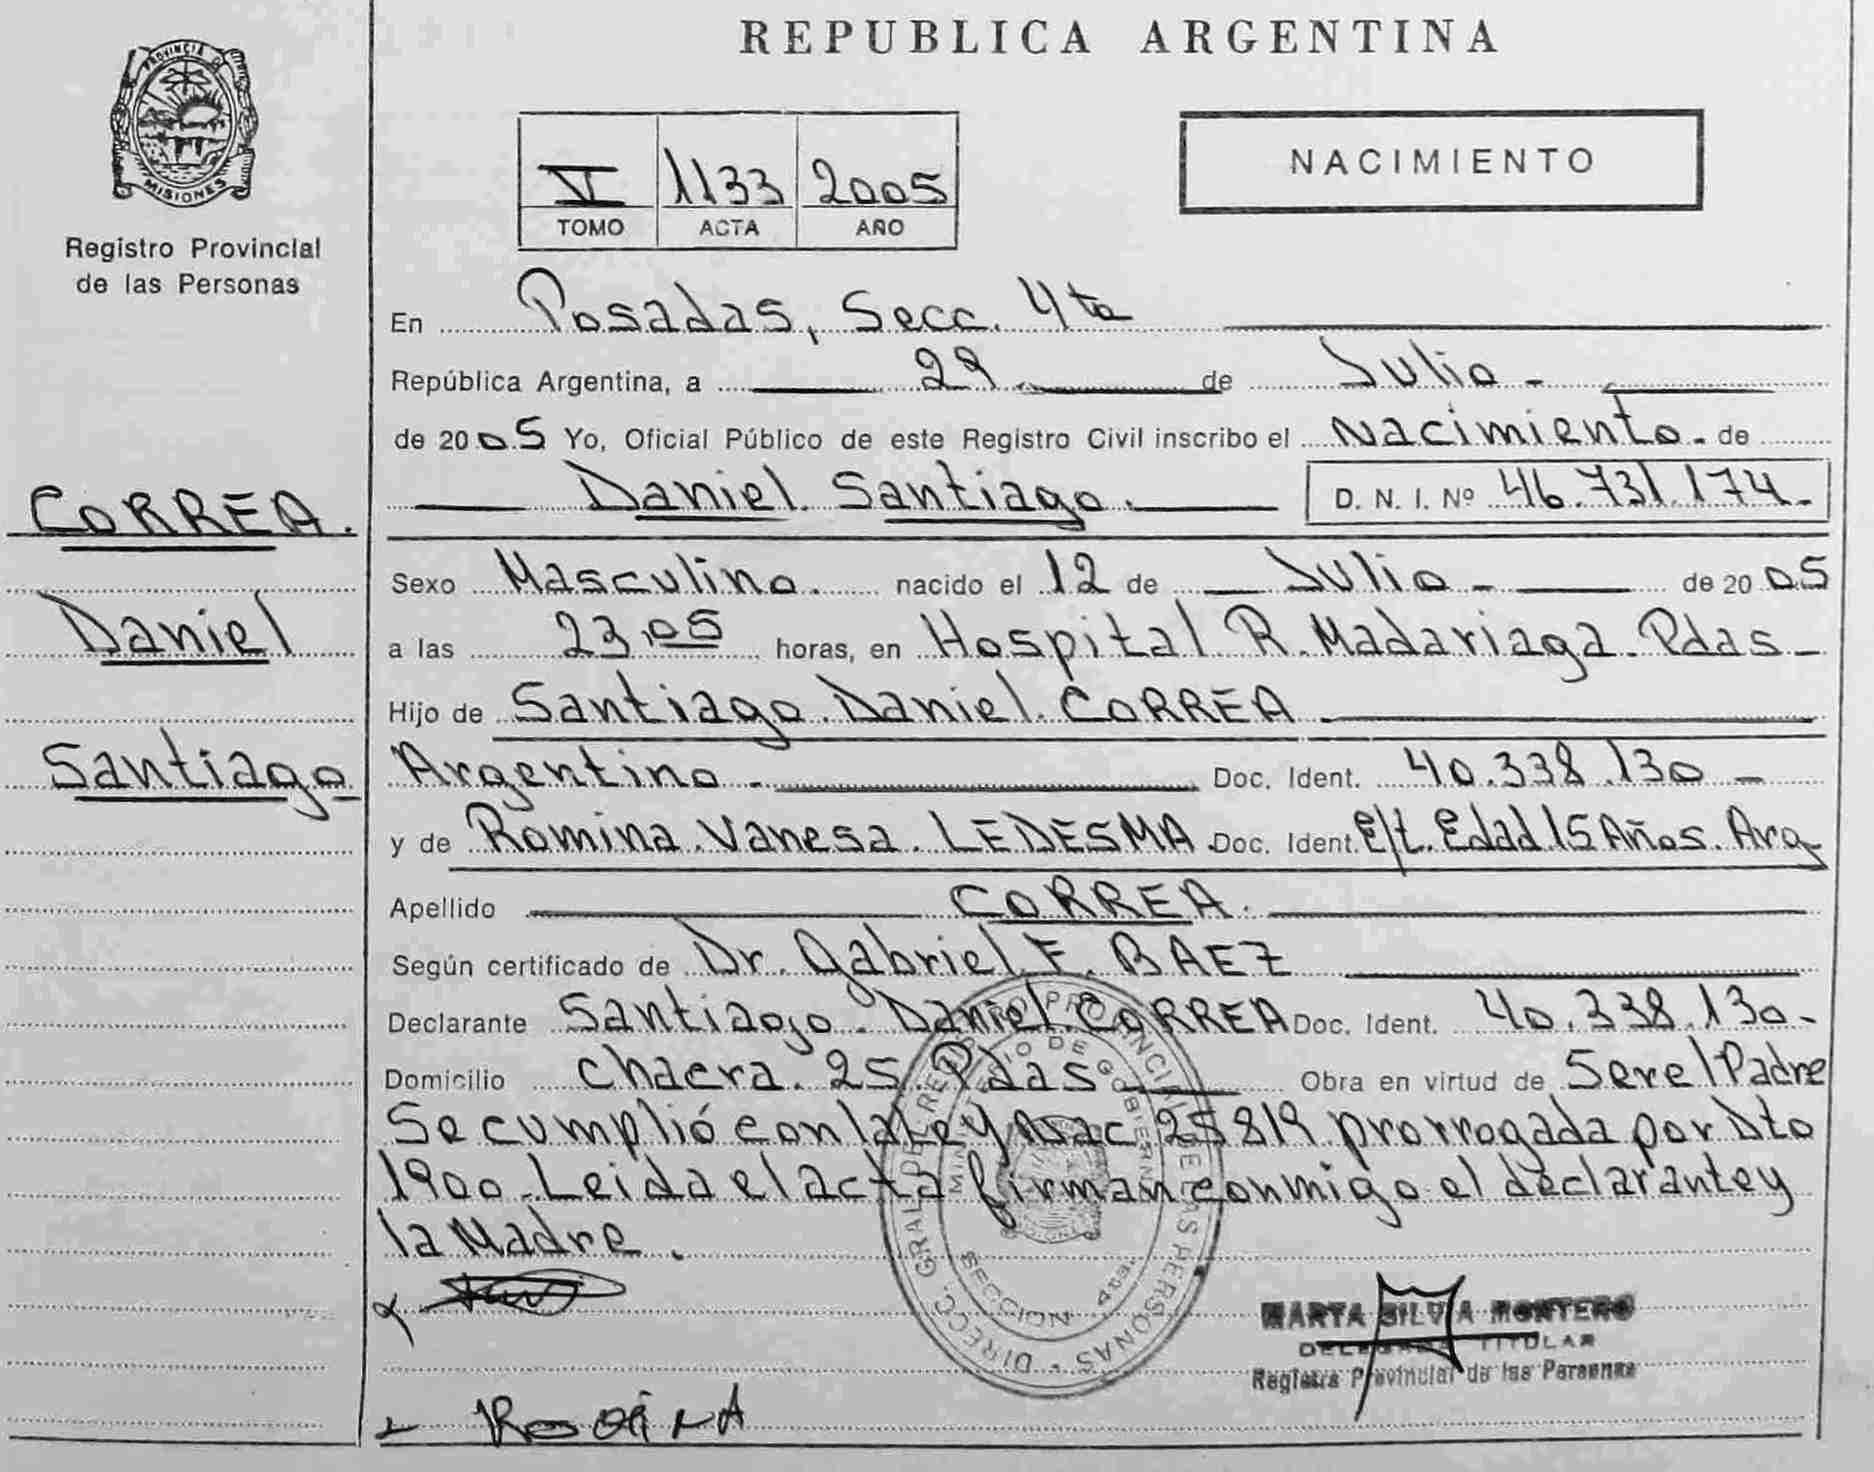 REPUBLICA ARGENTINA
PROVINCIA DE
MISIONES
Registro Provincial
de las Personas
V 1133 2005
TOMO ACTA AÑO
NACIMIENTO
En Posadas, Secc. 4ta
República Argentina, a 29 de Julio -
de 2005 Yo, Oficial Público de este Registro Civil inscribo el Nacimiento - de
Daniel Santiago. D. N. I. Nº 46.731.174-
CORREA.
Daniel
Santiago
Sexo Masculino. nacido el 12 de Julio - de 2005
a las 23,05 horas, en Hospital R. Madariaga. Pdas -
Hijo de Santiago Daniel CORREA
Argentino - Doc. Ident. 40.338.130 -
y de Romina Vanesa LEDESMA Doc. Ident. E/t. Edad 15 Años. Arg
Apellido CORREA.
Según certificado de Dr. Gabriel F. BAEZ
Declarante Santiago Daniel CORREA Doc. Ident. 40.338.130-
Domicilio Chacra. 25. Pdas - Obra en virtud de Ser el Padre
Se cumplió con la Ley Nac 25819 prorrogada por Dto
1900. Leida el acta firman conmigo el declarante y
la Madre.
DIRECC. GRAL DE REGISTRO PROVINCIAL DE LAS PERSONAS
MINISTERIO DE GOBIERNO
SECCION 4ta.
MARTA SILVIA MONTERO
DELEGADA TITULAR
Registro Provincial de las Personas